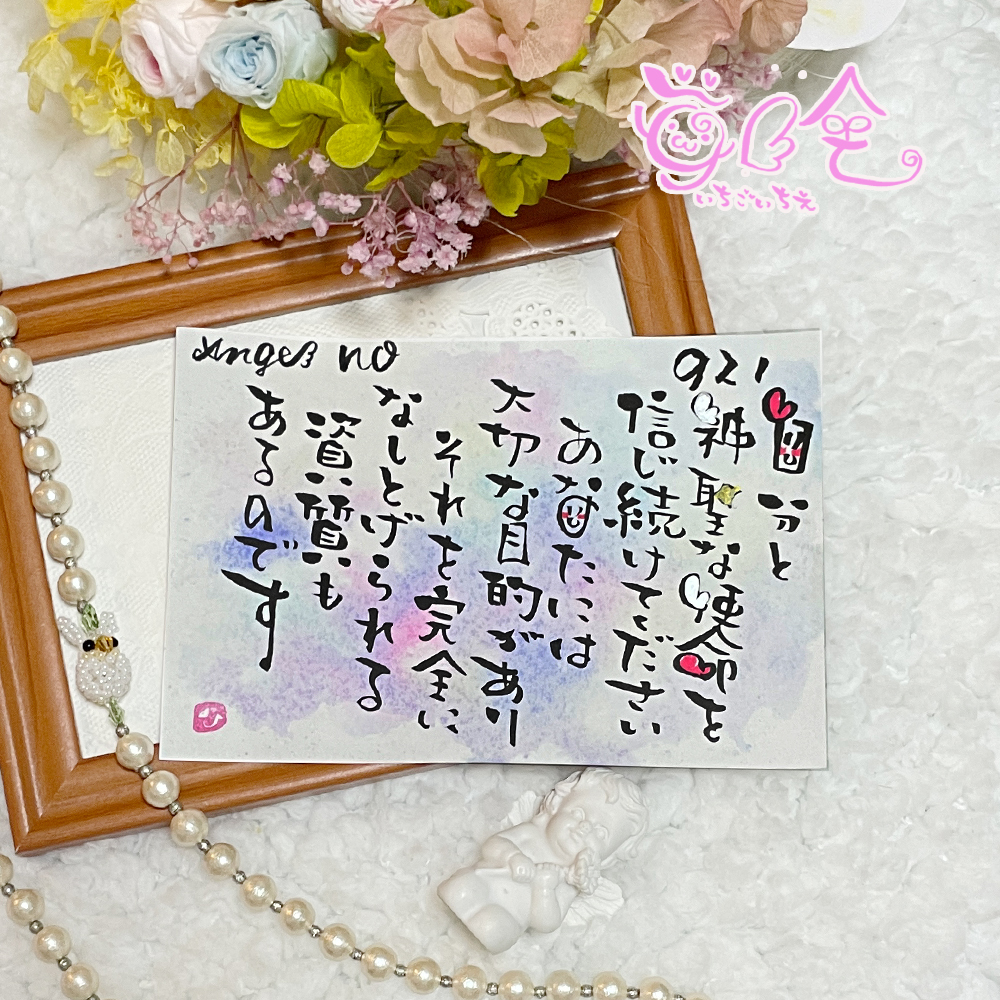 いちごいちえ
Angel no
921
自分と
神聖な使命を
信じ続けてください
あなたには
大切な目的があり
それを完全に
なしとげられる
資質も
あるのです